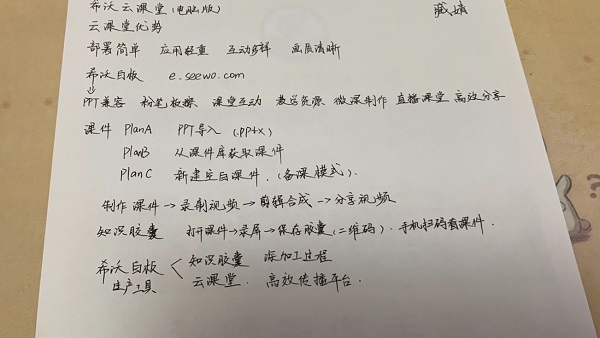 希沃云课堂(电脑版)
臧婧
云课堂优势
部署简单 应用轻重 互动多样 画质清晰
希沃白板 e.seewo.com
↓
PPT兼容 粉笔板擦 课堂互动 教学资源 微课制作 直播课堂 高效分享
课件 PlanA PPT导入 (.pptx)
PlanB 从课件库获取课件
PlanC 新建空白课件.(备课模式).
制作课件→录制视频→剪辑合成→分享视频
知识胶囊 打开课件→录屏→保存胶囊(二维码).手机扫码看课件.
希沃白板 < 知识胶囊 深加工过程
生产工具 云课堂. 高效传播平台.